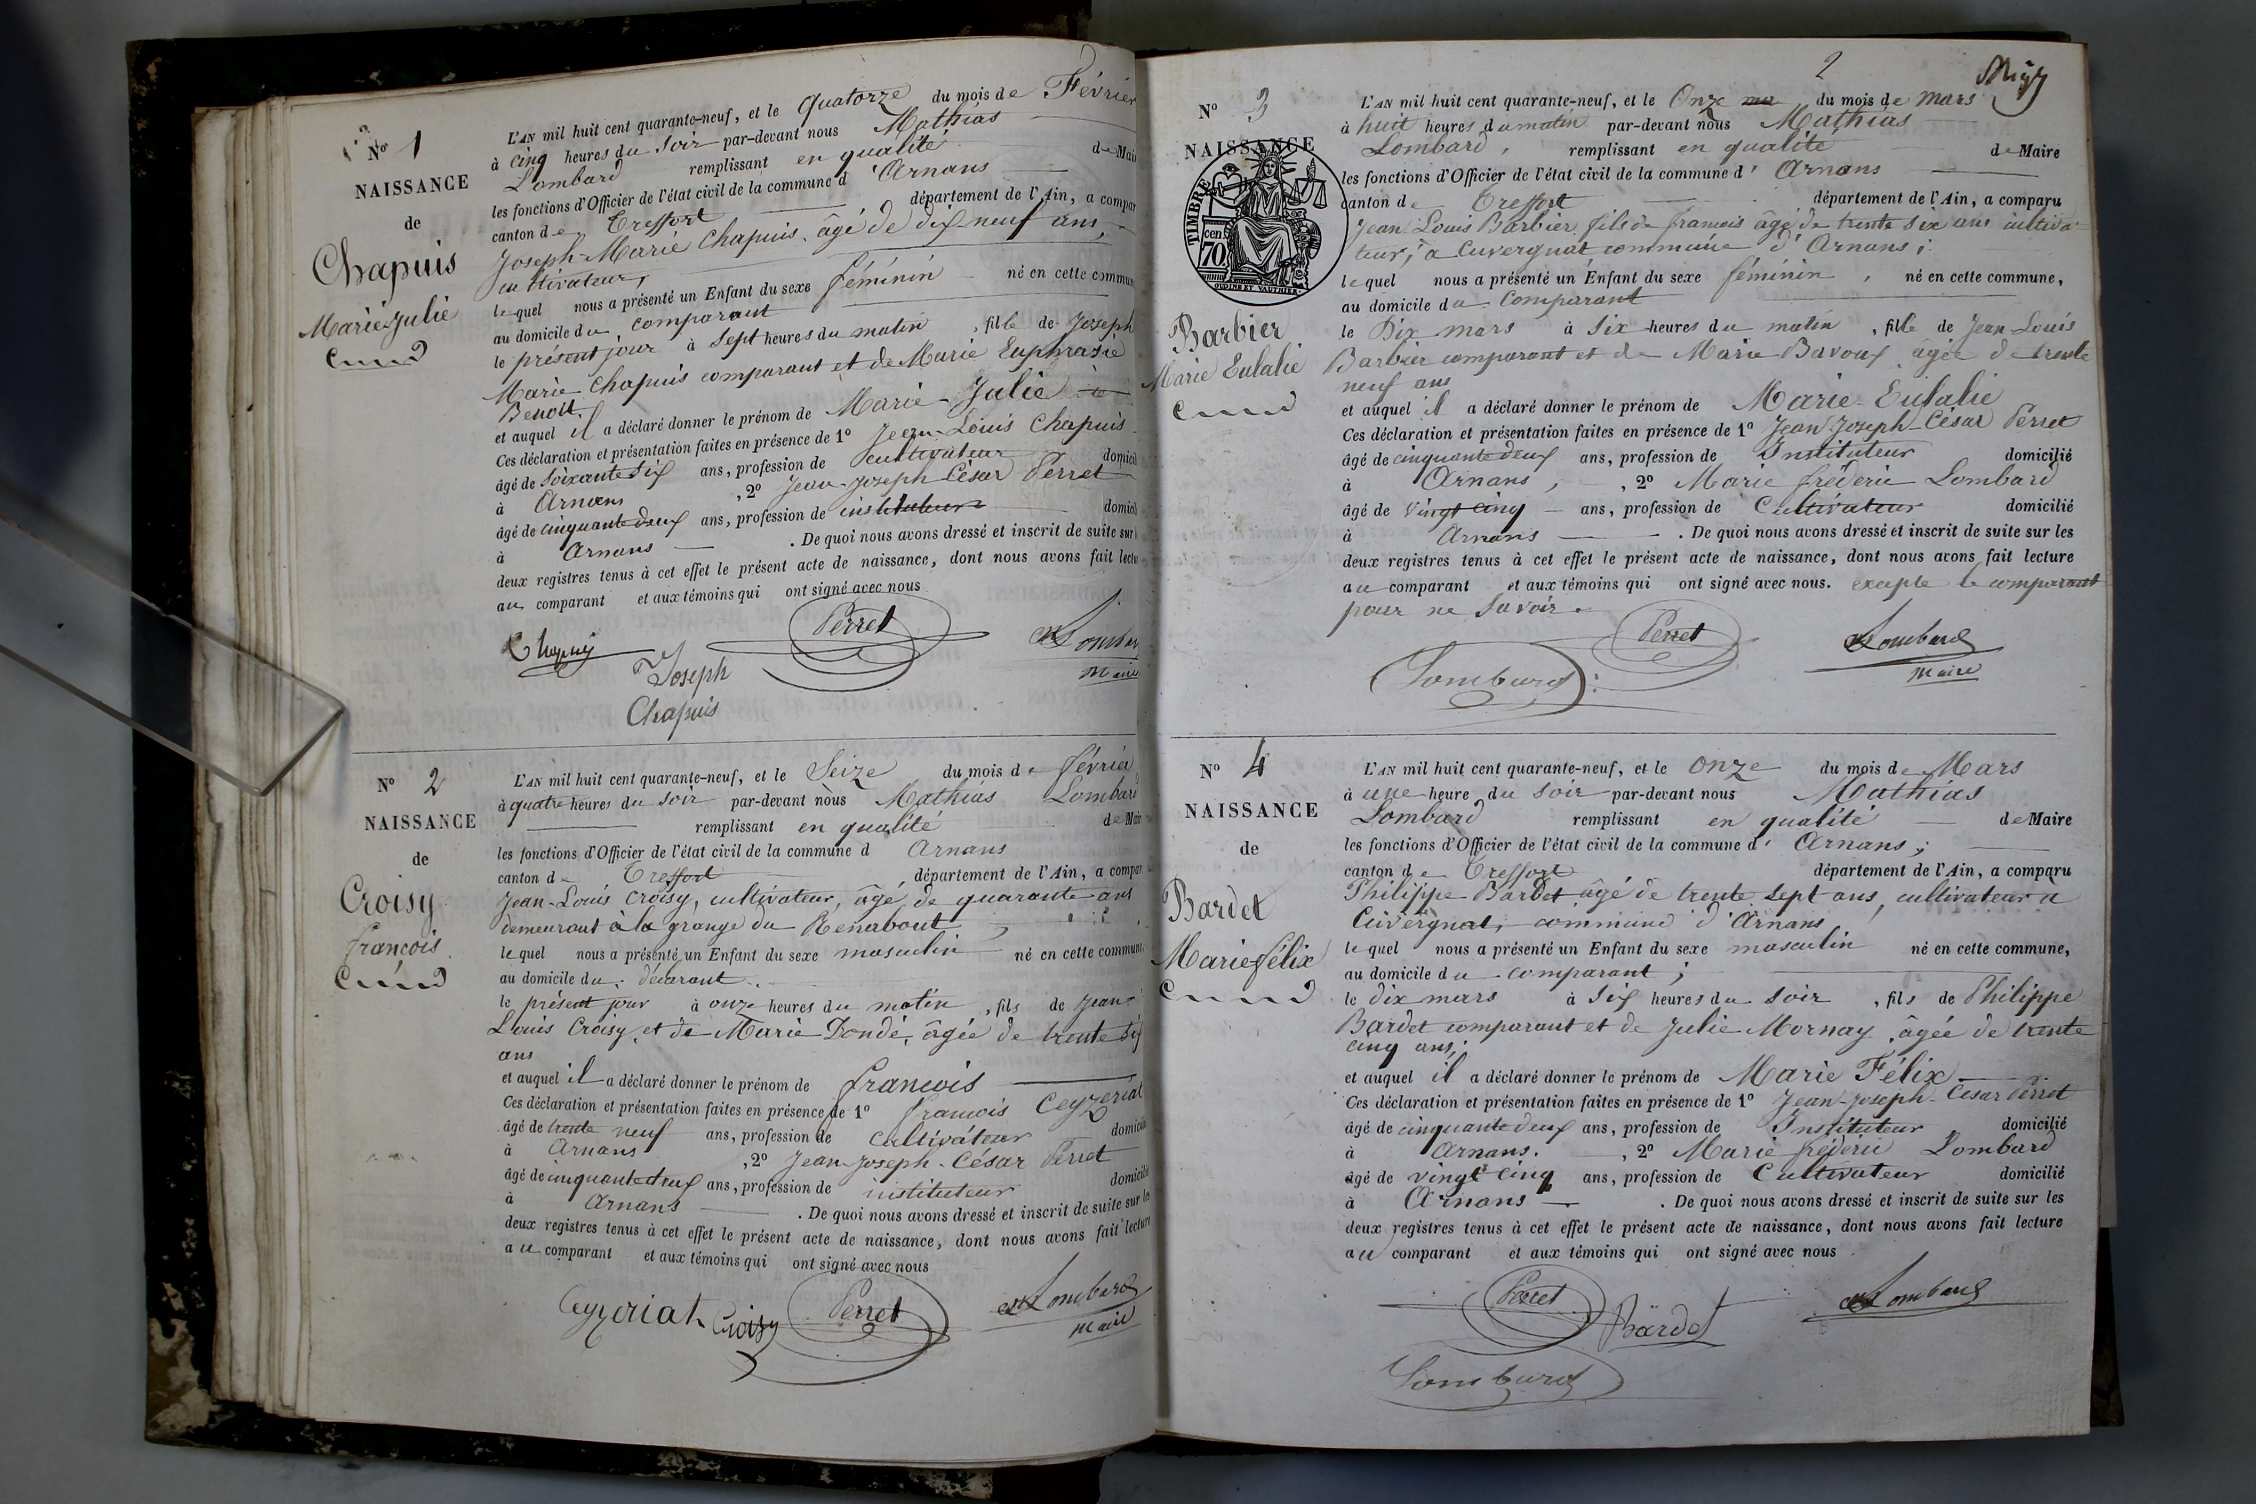 Nº 1
NAISSANCE
de
Chapuis
Marie Julie
L'AN mil huit cent quarante-neuf, et le quatorze du mois de Février
à cinq heures du soir par-devant nous Mathias
Lombard remplissant en qualité de Mai
les fonctions d'Officier de l'état civil de la commune d'Arnans
canton de Treffort département de l'Ain, a compar
Joseph-Marie Chapuis, âgé de dix neuf ans,
cultivateur,
lequel nous a présenté un Enfant du sexe féminin né en cette commun
au domicile du comparant
le présent jour à sept heures du matin, fille de Joseph
Marie Chapuis comparant et de Marie Euphrasie
Benoit
et auquel il a déclaré donner le prénom de Marie Julie
Ces déclaration et présentation faites en présence de 1º Jean-Louis Chapuis
âgé de soixante six ans, profession de cultivateur domicil
à Arnans, 2º Jean-Joseph César Perret
âgé de cinquante deux ans, profession de instituteur domicil
à Arnans. De quoi nous avons dressé et inscrit de suite sur l
deux registres tenus à cet effet le présent acte de naissance, dont nous avons fait lectu
au comparant et aux témoins qui ont signé avec nous
Chapuy Perret Lombar
Joseph Maire
Chapuis
Nº 2
NAISSANCE
de
Croisy
françois
L'AN mil huit cent quarante-neuf, et le Seize du mois de février
à quatre heures du soir par-devant nous Mathias Lombard
remplissant en qualité de Mair
les fonctions d'Officier de l'état civil de la commune d Arnans
canton de Treffort département de l'Ain, a compar
Jean-Louis Croisy, cultivateur, âgé de quarante ans
demeurant à la grange du Renabout
lequel nous a présenté un Enfant du sexe masculin né en cette commune
au domicile du décarant
le présent jour à onze heures du matin, fils de Jean
Louis Croisy et de Marie Dondé, âgée de trente six
ans
et auquel il a déclaré donner le prénom de françois
Ces déclaration et présentation faites en présence de 1º françois Ceyzériat
âgé de trente neuf ans, profession de cultivateur domicilié
à Arnans, 2º Jean-Joseph-César Perret
âgé de cinquante deux ans, profession de instituteur domicilié
à Arnans. De quoi nous avons dressé et inscrit de suite sur les
deux registres tenus à cet effet le présent acte de naissance, dont nous avons fait lecture
au comparant et aux témoins qui ont signé avec nous
Ceyzeriat Croisy Perret Lombard
Maire
2
Nº 3
NAISSANCE
TIMBRE
cen
70
OUDINÉ ET VAUTHIER
Barbier
Marie Eulalie
L'AN mil huit cent quarante-neuf, et le Onze du mois de mars
à huit heures du matin par-devant nous Mathias
Lombard, remplissant en qualité de Maire
les fonctions d'Officier de l'état civil de la commune d'Arnans
canton de Treffort département de l'Ain, a comparu
Jean Louis Barbier fils de françois âgé de trente six ans cultiva-
teur, à Cuvergnat, commune d'Arnans;
lequel nous a présenté un Enfant du sexe féminin, né en cette commune,
au domicile du comparant
le Dix mars à six heures du matin, fille de Jean-Louis
Barbier comparant et de Marie Bavoux âgée de trente
neuf ans
et auquel il a déclaré donner le prénom de Marie-Eulalie
Ces déclaration et présentation faites en présence de 1º Jean-Joseph-César Perret
âgé de cinquante deux ans, profession de Instituteur domicilié
à Arnans, 2º Marie fréderic Lombard
âgé de vingt cinq ans, profession de Cultivateur domicilié
à Arnans. De quoi nous avons dressé et inscrit de suite sur les
deux registres tenus à cet effet le présent acte de naissance, dont nous avons fait lecture
au comparant et aux témoins qui ont signé avec nous. excepte le comparant
pour ne savoir.
Lombard Perret Lombard
Maire
Nº 4
NAISSANCE
de
Bardet
Marie félix
L'AN mil huit cent quarante-neuf, et le onze du mois de Mars
à une heure du soir par-devant nous Mathias
Lombard remplissant en qualité de Maire
les fonctions d'Officier de l'état civil de la commune d'Arnans;
canton de Treffort département de l'Ain, a comparu
Philippe Bardet âgé de trente sept ans, cultivateur à
Cuvergnat, commune d'Arnans
lequel nous a présenté un Enfant du sexe masculin né en cette commune,
au domicile du comparant;
le dix mars à six heures du soir, fils de Philippe
Bardet comparant et de Julie Mornay, âgée de trente
cinq ans;
et auquel il a déclaré donner le prénom de Marie Félix
Ces déclaration et présentation faites en présence de 1º Jean-Joseph-César Perret
âgé de cinquante deux ans, profession de Instituteur domicilié
à Arnans, 2º Marie fréderic Lombard
âgé de vingt cinq ans, profession de Cultivateur domicilié
à Arnans. De quoi nous avons dressé et inscrit de suite sur les
deux registres tenus à cet effet le présent acte de naissance, dont nous avons fait lecture
au comparant et aux témoins qui ont signé avec nous
Perret Bardet Lombard
Lombard